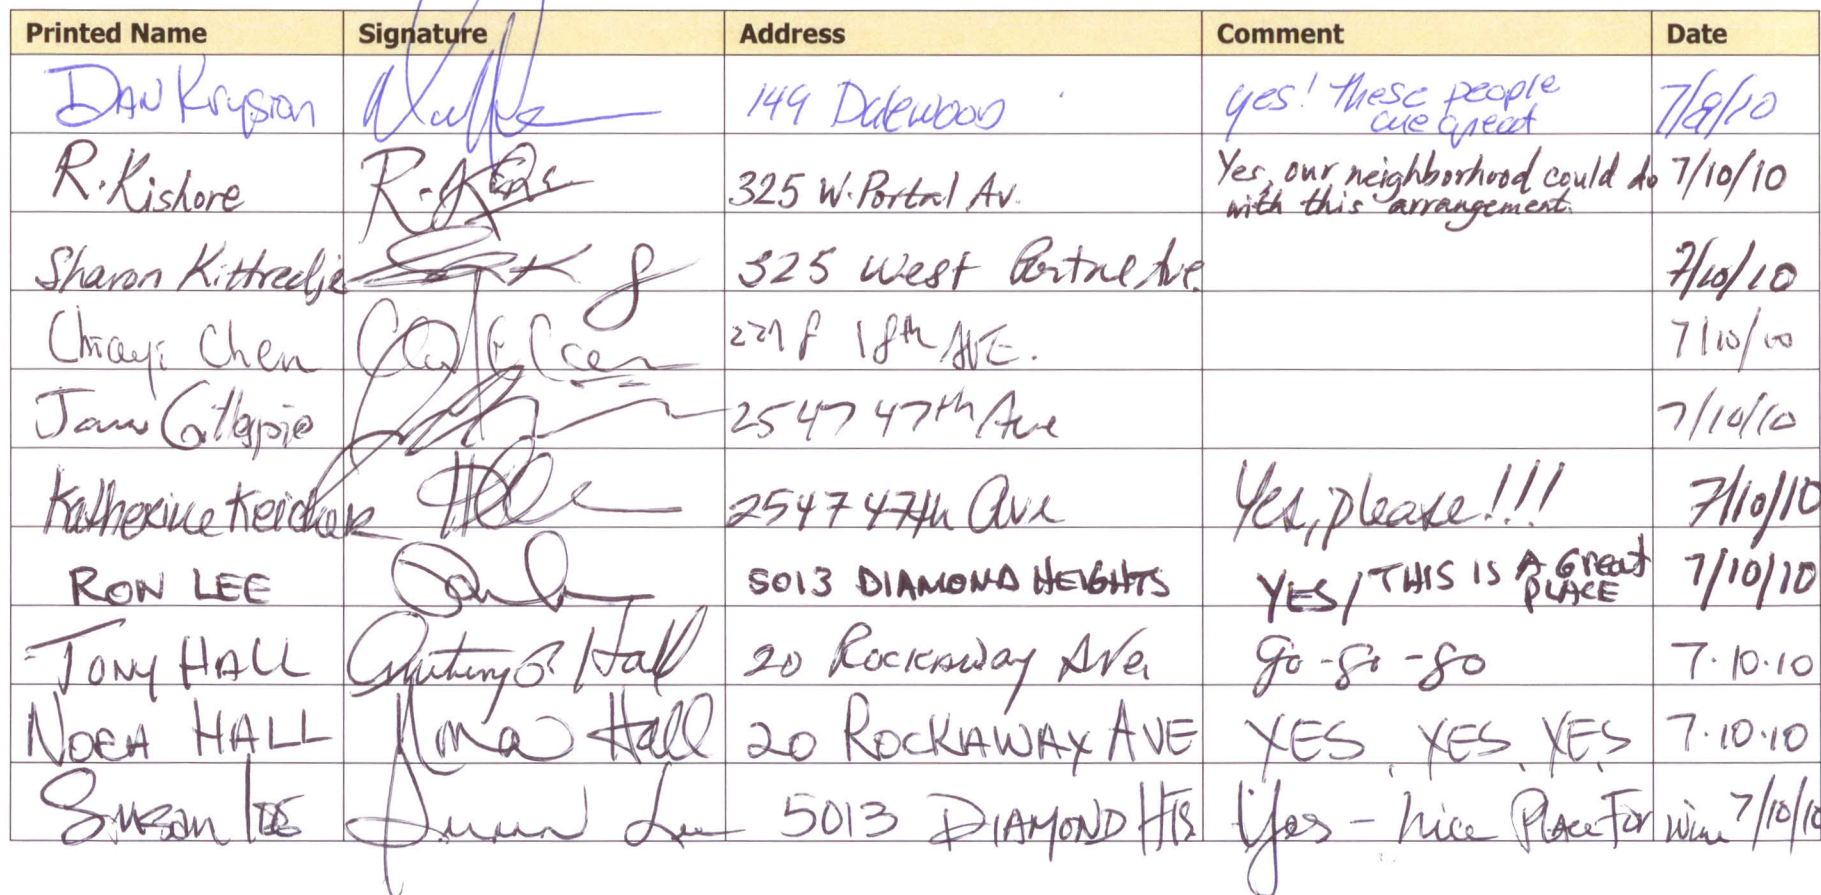 Printed Name Signature Address Comment Date
DAN 149 Dalewood yes! these people are great 7/9/10
R. Kishore R. Kishore 325 W. Portal Av. Yes, our neighborhood could do with this arrangement. 7/10/10
Sharon Kittredje 325 West Portal Ave. 7/10/10
Chiayi Chen 18th AVE. 7/10/10
Gillespie 2547 47th Ave 7/10/10
Katherine 2547 47th Ave Yes, please!!! 7/10/10
RON LEE 5013 DIAMOND HEIGHTS YES! THIS IS A Great PLACE 7/10/10
TONY HALL Hall 20 Rockaway Ave go-go-go 7.10.10
NORA HALL Nora Hall 20 ROCKAWAY AVE YES, YES, YES, 7.10.10
Susan LEE Susan Lee 5013 DIAMOND HTS Yes - nice Place For wine 7/10/10